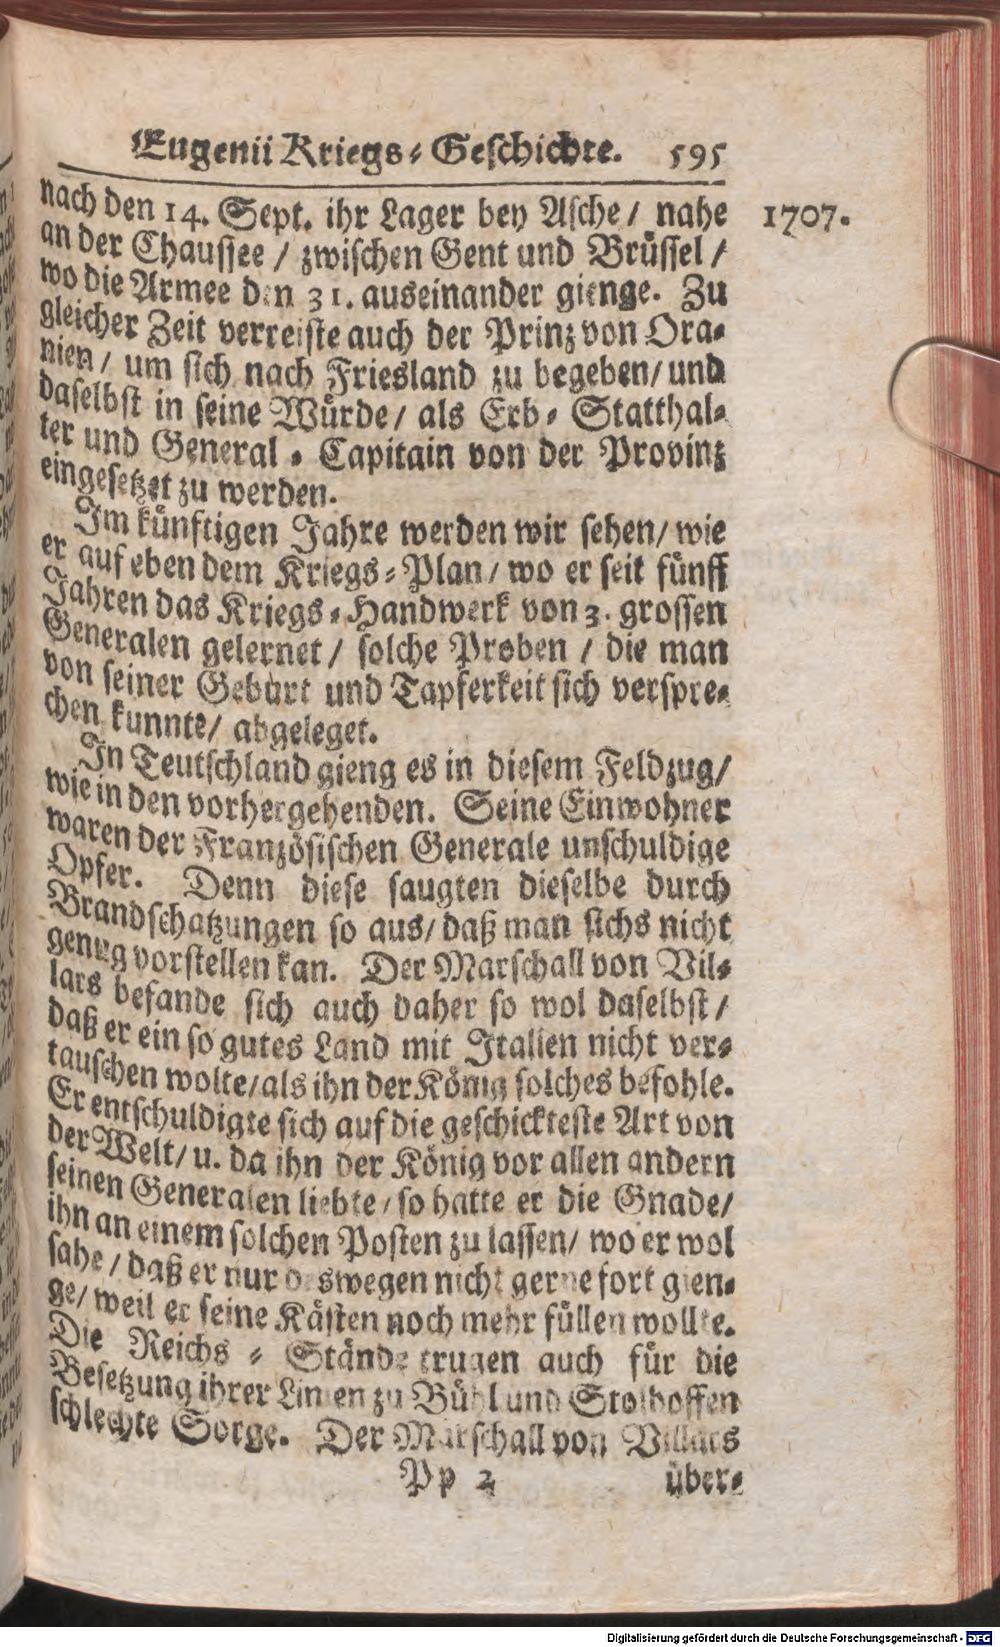 Eugenii Kriegs-Geschichte. 595
nach den 14. Sept. ihr Lager bey Asche/ nahe 1707.
an der Chaussee / zwischen Gent und Brüssel /
wo die Armee den 31. auseinander gienge. Zu
gleicher Zeit verreiste auch der Prinz von Ora-
nien/ um sich nach Friesland zu begeben/ und
daselbst in seine Würde/ als Erb- Statthal-
ter und General - Capitain von der Provinz
eingesetzet zu werden.
Im künftigen Jahre werden wir sehen/ wie
er auf eben dem Kriegs-Plan/ wo er seit fünff
Jahren das Kriegs-Handwerk von 3. grossen
Generalen gelernet/ solche Proben / die man
von seiner Geburt und Tapferkeit sich verspre-
chen kunnte/ abgeleget.
In Teutschland gieng es in diesem Feldzug/
wie in den vorhergehenden. Seine Einwohner
waren der Französischen Generale unschuldige
Opfer. Denn diese saugten dieselbe durch
Brandschatzungen so aus/ daß man sichs nicht
genug vorstellen kan. Der Marschall von Vil-
lars befande sich auch daher so wol daselbst/
daß er ein so gutes Land mit Italien nicht ver-
tauschen wolte/ als ihn der König solches befohle.
Er entschuldigte sich auf die geschickteste Art von
der Welt/ u. da ihn der König vor allen andern
seinen Generalen liebte/ so hatte er die Gnade/
ihn an einem solchen Posten zu lassen/ wo er wol
sahe/ daß er nur deswegen nicht gerne fort gien-
ge/ weil er seine Kästen noch mehr füllen wollte.
Die Reichs - Stände trugen auch für die
Besetzung ihrer Linien zu Bühl und Stolhoffen
schlechte Sorge. Der Marschall von Villars
Pp 2 über-
Digitalisierung gefördert durch die Deutsche Forschungsgemeinschaft - DFG